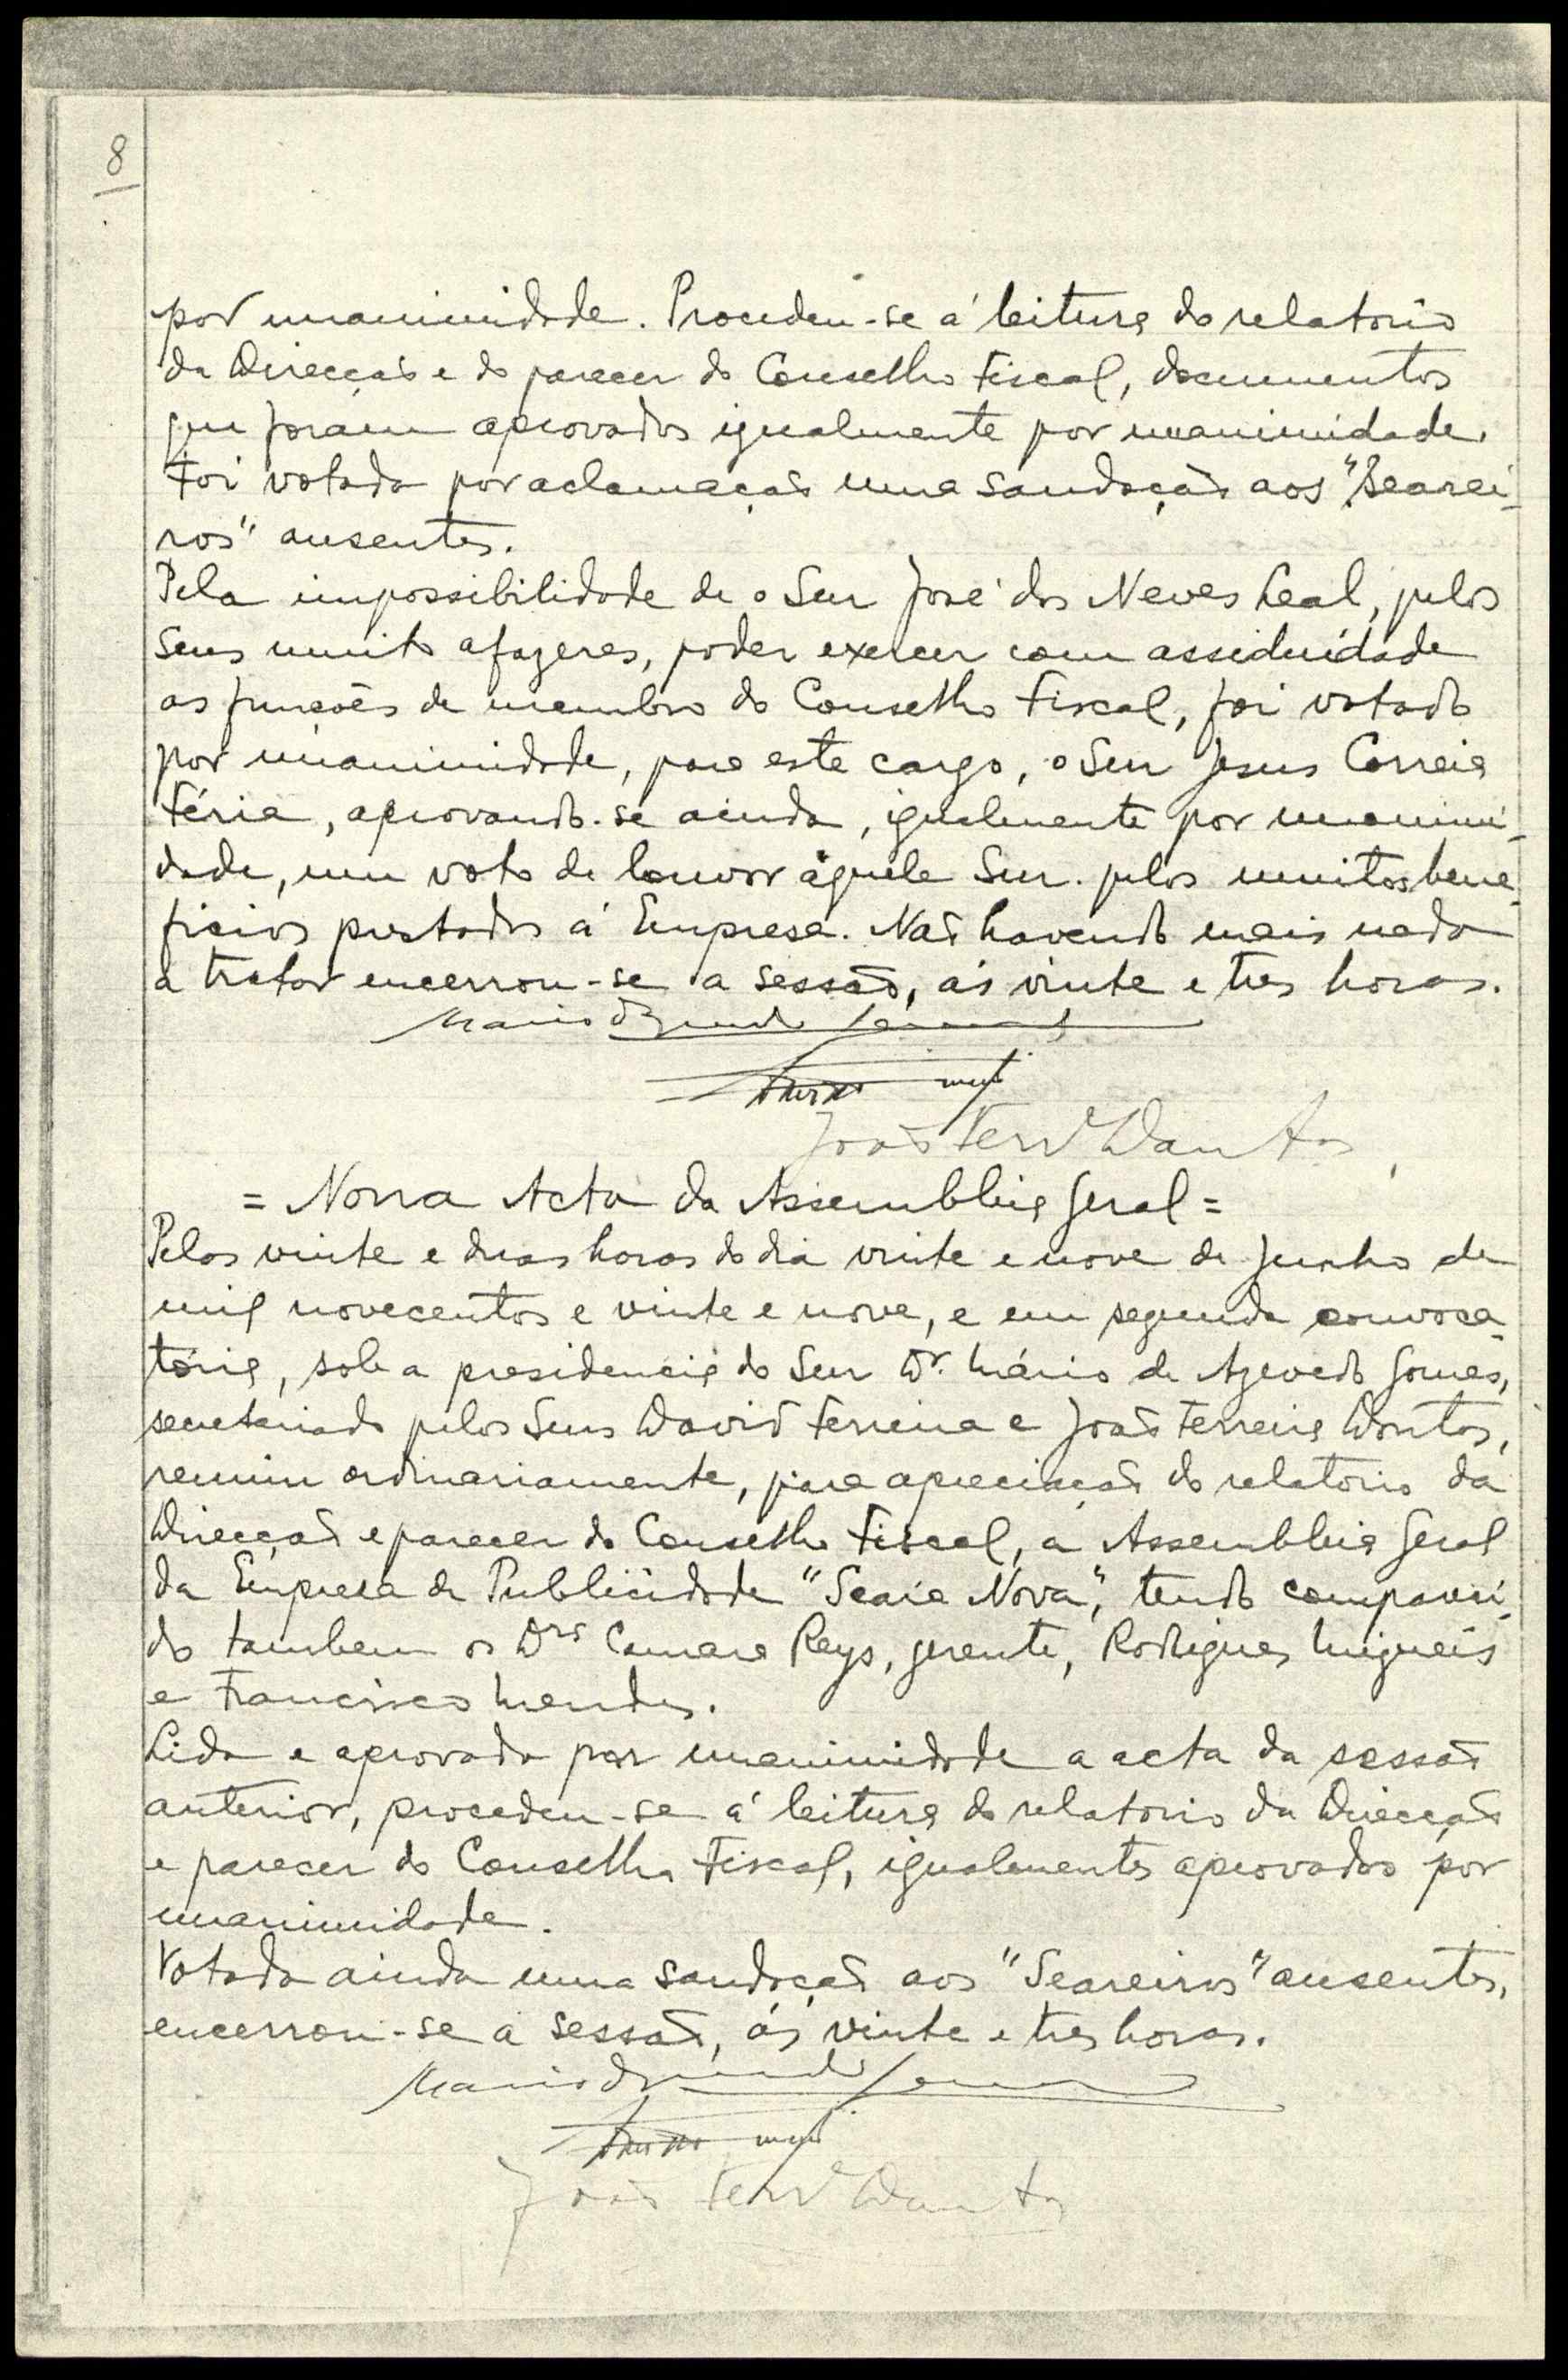 8
por unanimidade. Procedeu-se á leitura do relatorio
da Direcção e do parecer do Conselho Fiscal, documentos
que foram aprovados igualmente por unanimidade.
Foi votada por aclamação uma saudação aos "Searei-
ros" ausentes.
Pela impossibilidade de o Snr José das Neves Leal, pelos
seus muito afazeres, poder exercer com assiduidade
as funções de membro do Conselho Fiscal, foi votado
por unanimidade, para este cargo, o Snr Jesus Correia
Féria, aprovando-se ainda, igualmente por unanimi-
dade, um voto de louvor áquele Snr. pelos muitos bene-
ficios prestados á Empresa. Não havendo mais nada
a tratar encerrou-se a sessão, ás vinte e tres horas.
Mario d'Azevedo Gomes
João Ferrª Dantas
= Nona Acta da Assembleia Geral =
Pelas vinte e duas horas do dia vinte e nove de Junho de
mil novecentos e vinte e nove, e em segunda convoca-
tória, sob a presidencia do Snr Dr. Mário de Azevedo Gomes,
secretariado pelos Snrs David Ferreira e João Ferreira Dantas,
reuniu ordinariamente, para apreciação do relatorio da
Direcção e parecer do Conselho Fiscal, a Assembleia Geral
da Empresa de Publicidade "Seara Nova", tendo compareci-
do tambem os Drs Camara Reys, gerente, Rodrigues Migueis
e Francisco Mendes.
Lida e aprovada por unanimidade a acta da sessão
anterior, procedeu-se á leitura do relatorio da Direcção
e parecer do Conselho Fiscal, igualmente aprovados por
unanimidade.
Votada ainda uma saudação aos "Seareiros" ausentes,
encerrou-se a sessão, ás vinte e tres horas.
Mario d'Azevedo Gomes
João Ferrª Dantas